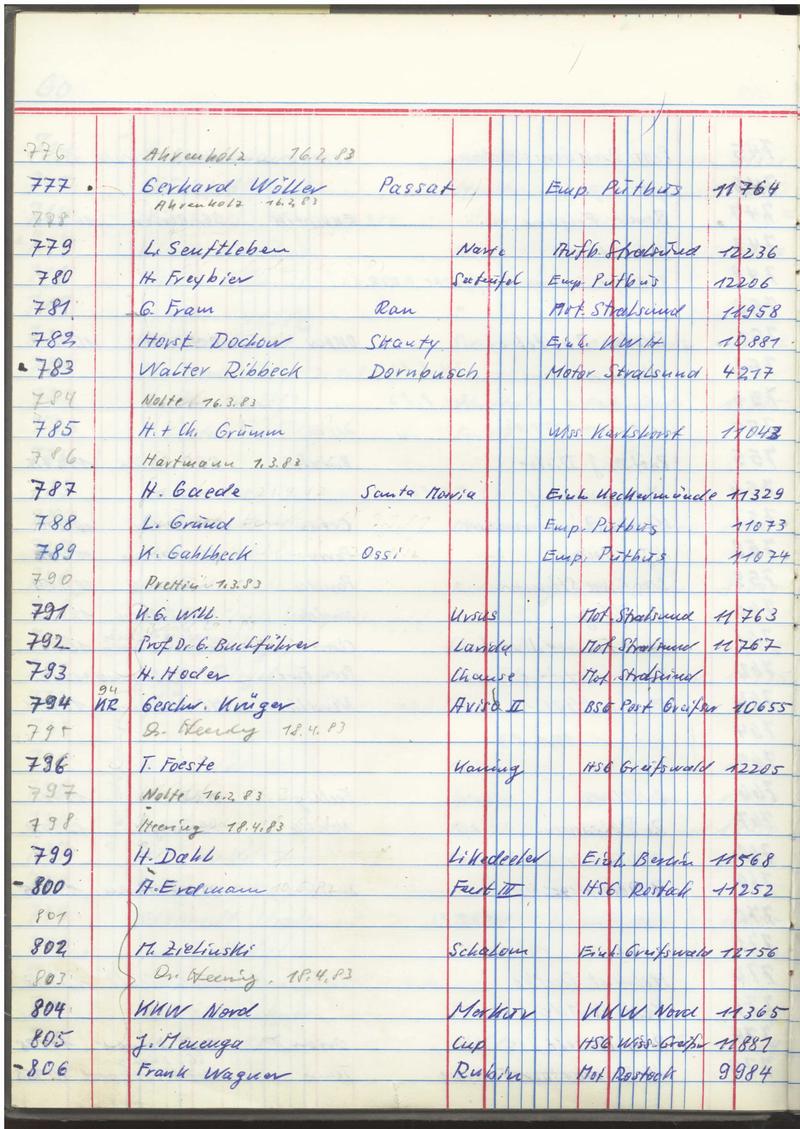 776 Ahrenholz 16.2.83
777 . Gerhard Wöller Passat Emp. Putbus 11764
Ahrenholz 16.2.83
778
779 L. Senftleben Aufb. Stralsund 12236
780 H. Freybier Seeteufel Emp. Putbus 12206
781 G. Fram Ran Mot. Stralsund 11958
782 Horst Dochow Shanty Einh. KWH 10881
783 Walter Ribbeck Dornbusch Motor Stralsund 4217
784 Nolte 16.3.83
785 H. + Ch. Grümm Wiss. Karlshorst 11043
786 Hartmann 1.3.83
787 H. Gaede Santa Maria Einh. Ueckermünde 11329
788 L. Gründ Emp. Putbus 11073
789 K. Gahlbeck Ossi Emp. Putbus 11074
790 Prettin 1.3.83
791 K.G. Will Ursus Mot. Stralsund 11763
792 Prof Dr. G. Buchführer Mot. Stralsund 11767
793 H. Hoder Mot. Stralsund
794 94 KR Geschw. Krüger Aviso II BSG Post Greifsw 10655
795 Dr. 18.4.83
796 T. Foeste HSG Greifswald 12205
797 Nolte 16.2.83
798 Heering 18.4.83
799 H. Dahl Likedeeler Einh. Berlin 11568
- 800 A. Erdmann Faust III HSG Rostock 11252
801
802 M. Zielinski Schalom Einh. Greifswald 12156
803 Dr. Heering. 18.4.83
804 KKW Nord Merkur KKW Nord 11365
805 J. Menenga Cup HSG Wiss. Greifsw 11881
- 806 Frank Wagner Rubin Mot Rostock 9984